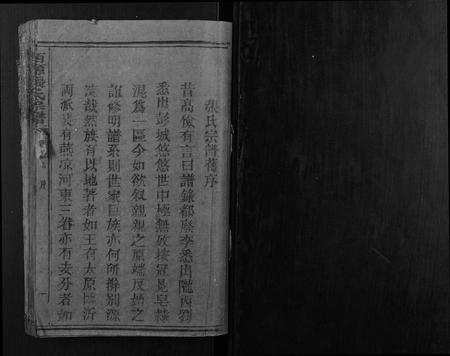 張氏宗譜舊序
昔高儉有言曰譜錄都廢李悉出隴西劉
悉出彭城悠悠世中極無攷按冠冕皂隸
混爲一區今如欲叙親親之原端反始之
誼修明譜系則世家巨族亦何所辨別源
哉然族有以地著者如王有太原臨沂
兩派裴有燕凉河東三眷亦有支分者如